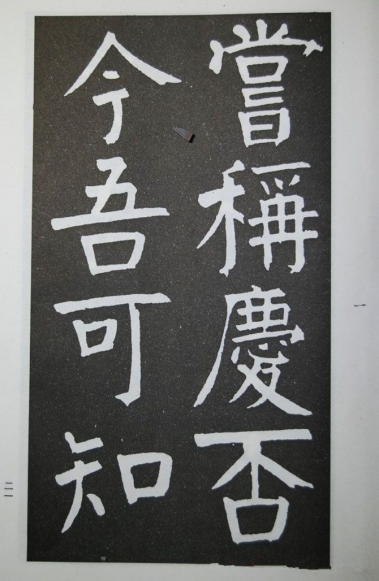 嘗稱慶否
今吾可知
一
三